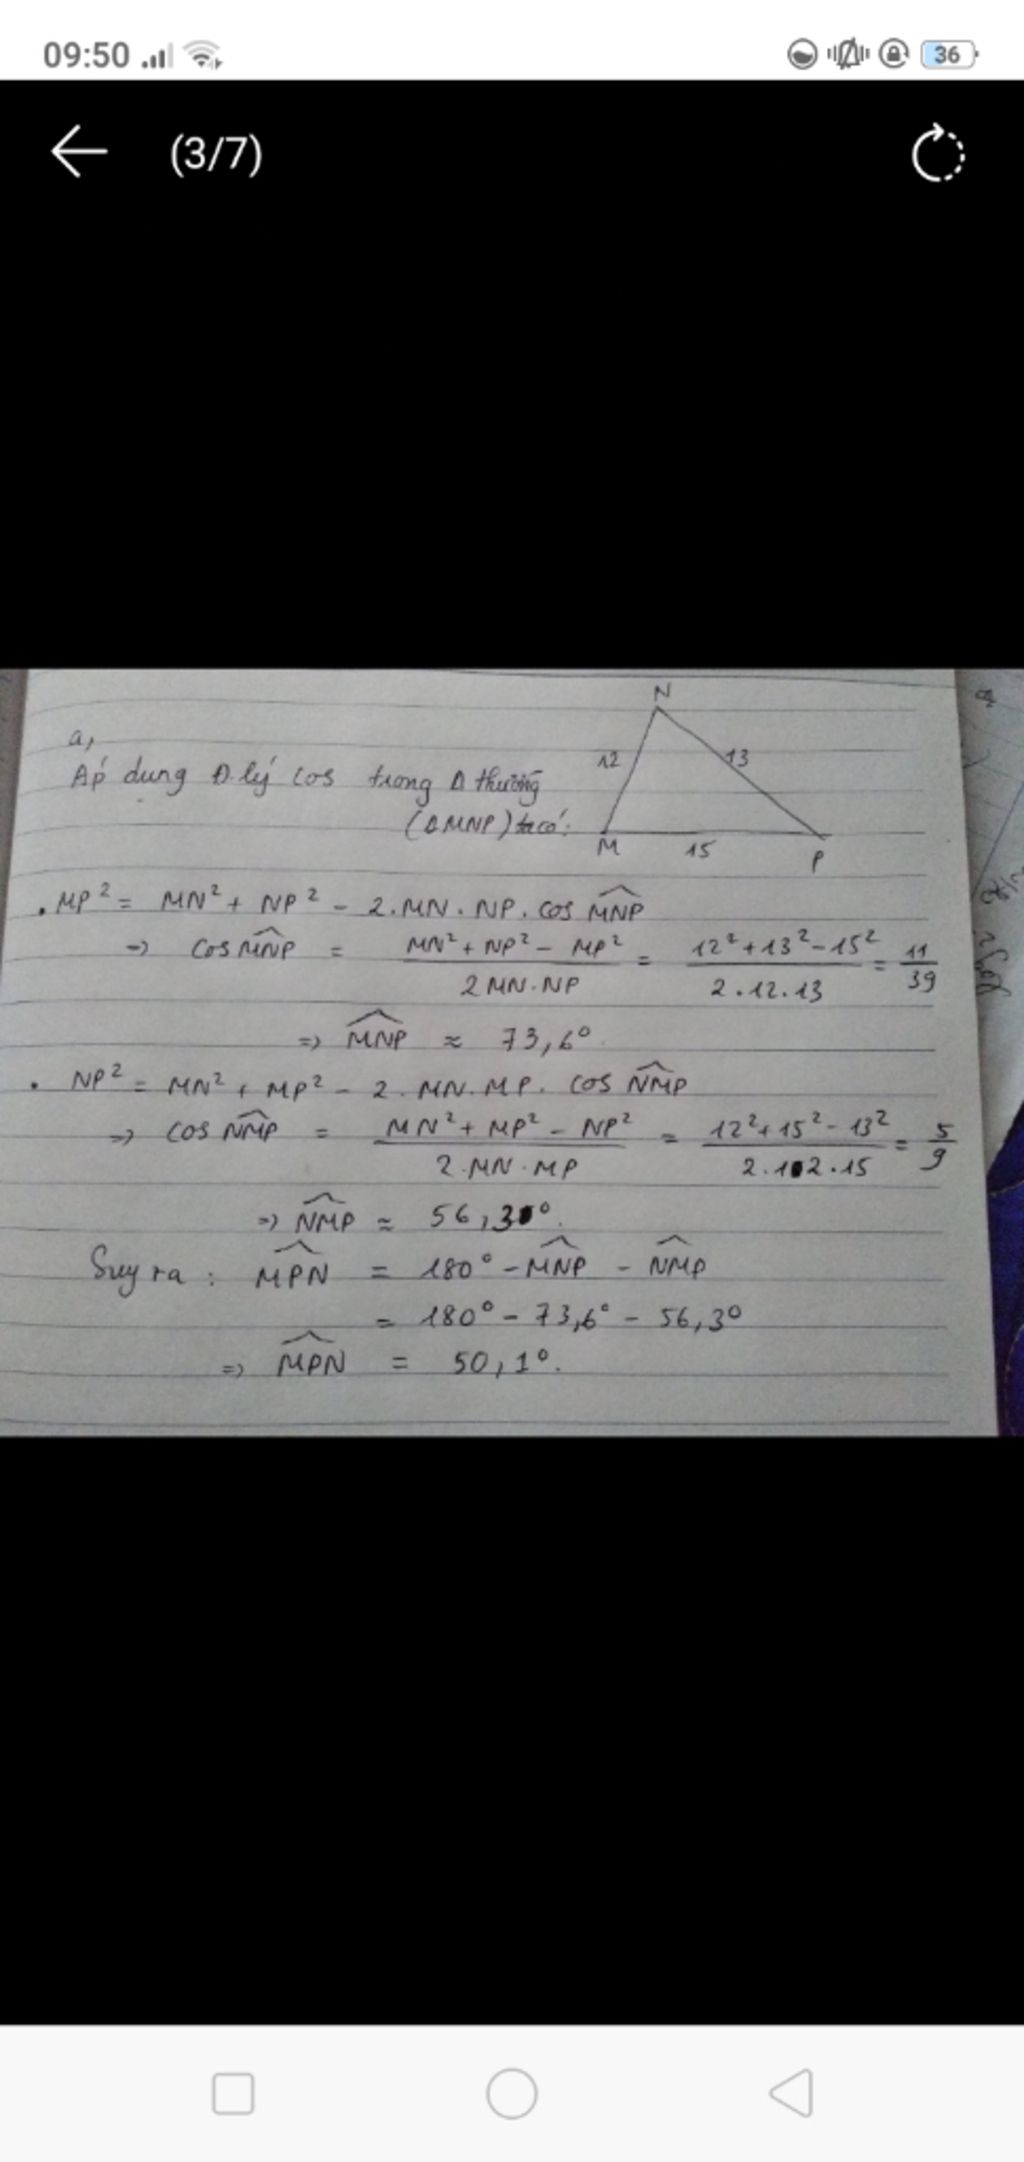 09:50 36
(3/7)
N
a,
12 13
Áp dung Đ.lý cos trong Δ thường
(ΔMNP) ta có:
M 15 P
. MP² = MN² + NP² - 2.MN.NP.cos MNP
=> cos MNP = MN² + NP² - MP² / 2MN.NP = 12² + 13² - 15² / 2.12.13 = 11/39
=> MNP ≈ 73,6°.
. NP² = MN² + MP² - 2.MN.MP. cos NMP
=> cos NMP = MN² + MP² - NP² / 2.MN.MP = 12² + 15² - 13² / 2.12.15 = 5/9
=> NMP ≈ 56,3°.
Suy ra : MPN = 180° - MNP - NMP
= 180° - 73,6° - 56,3°
=> MPN = 50,1°.